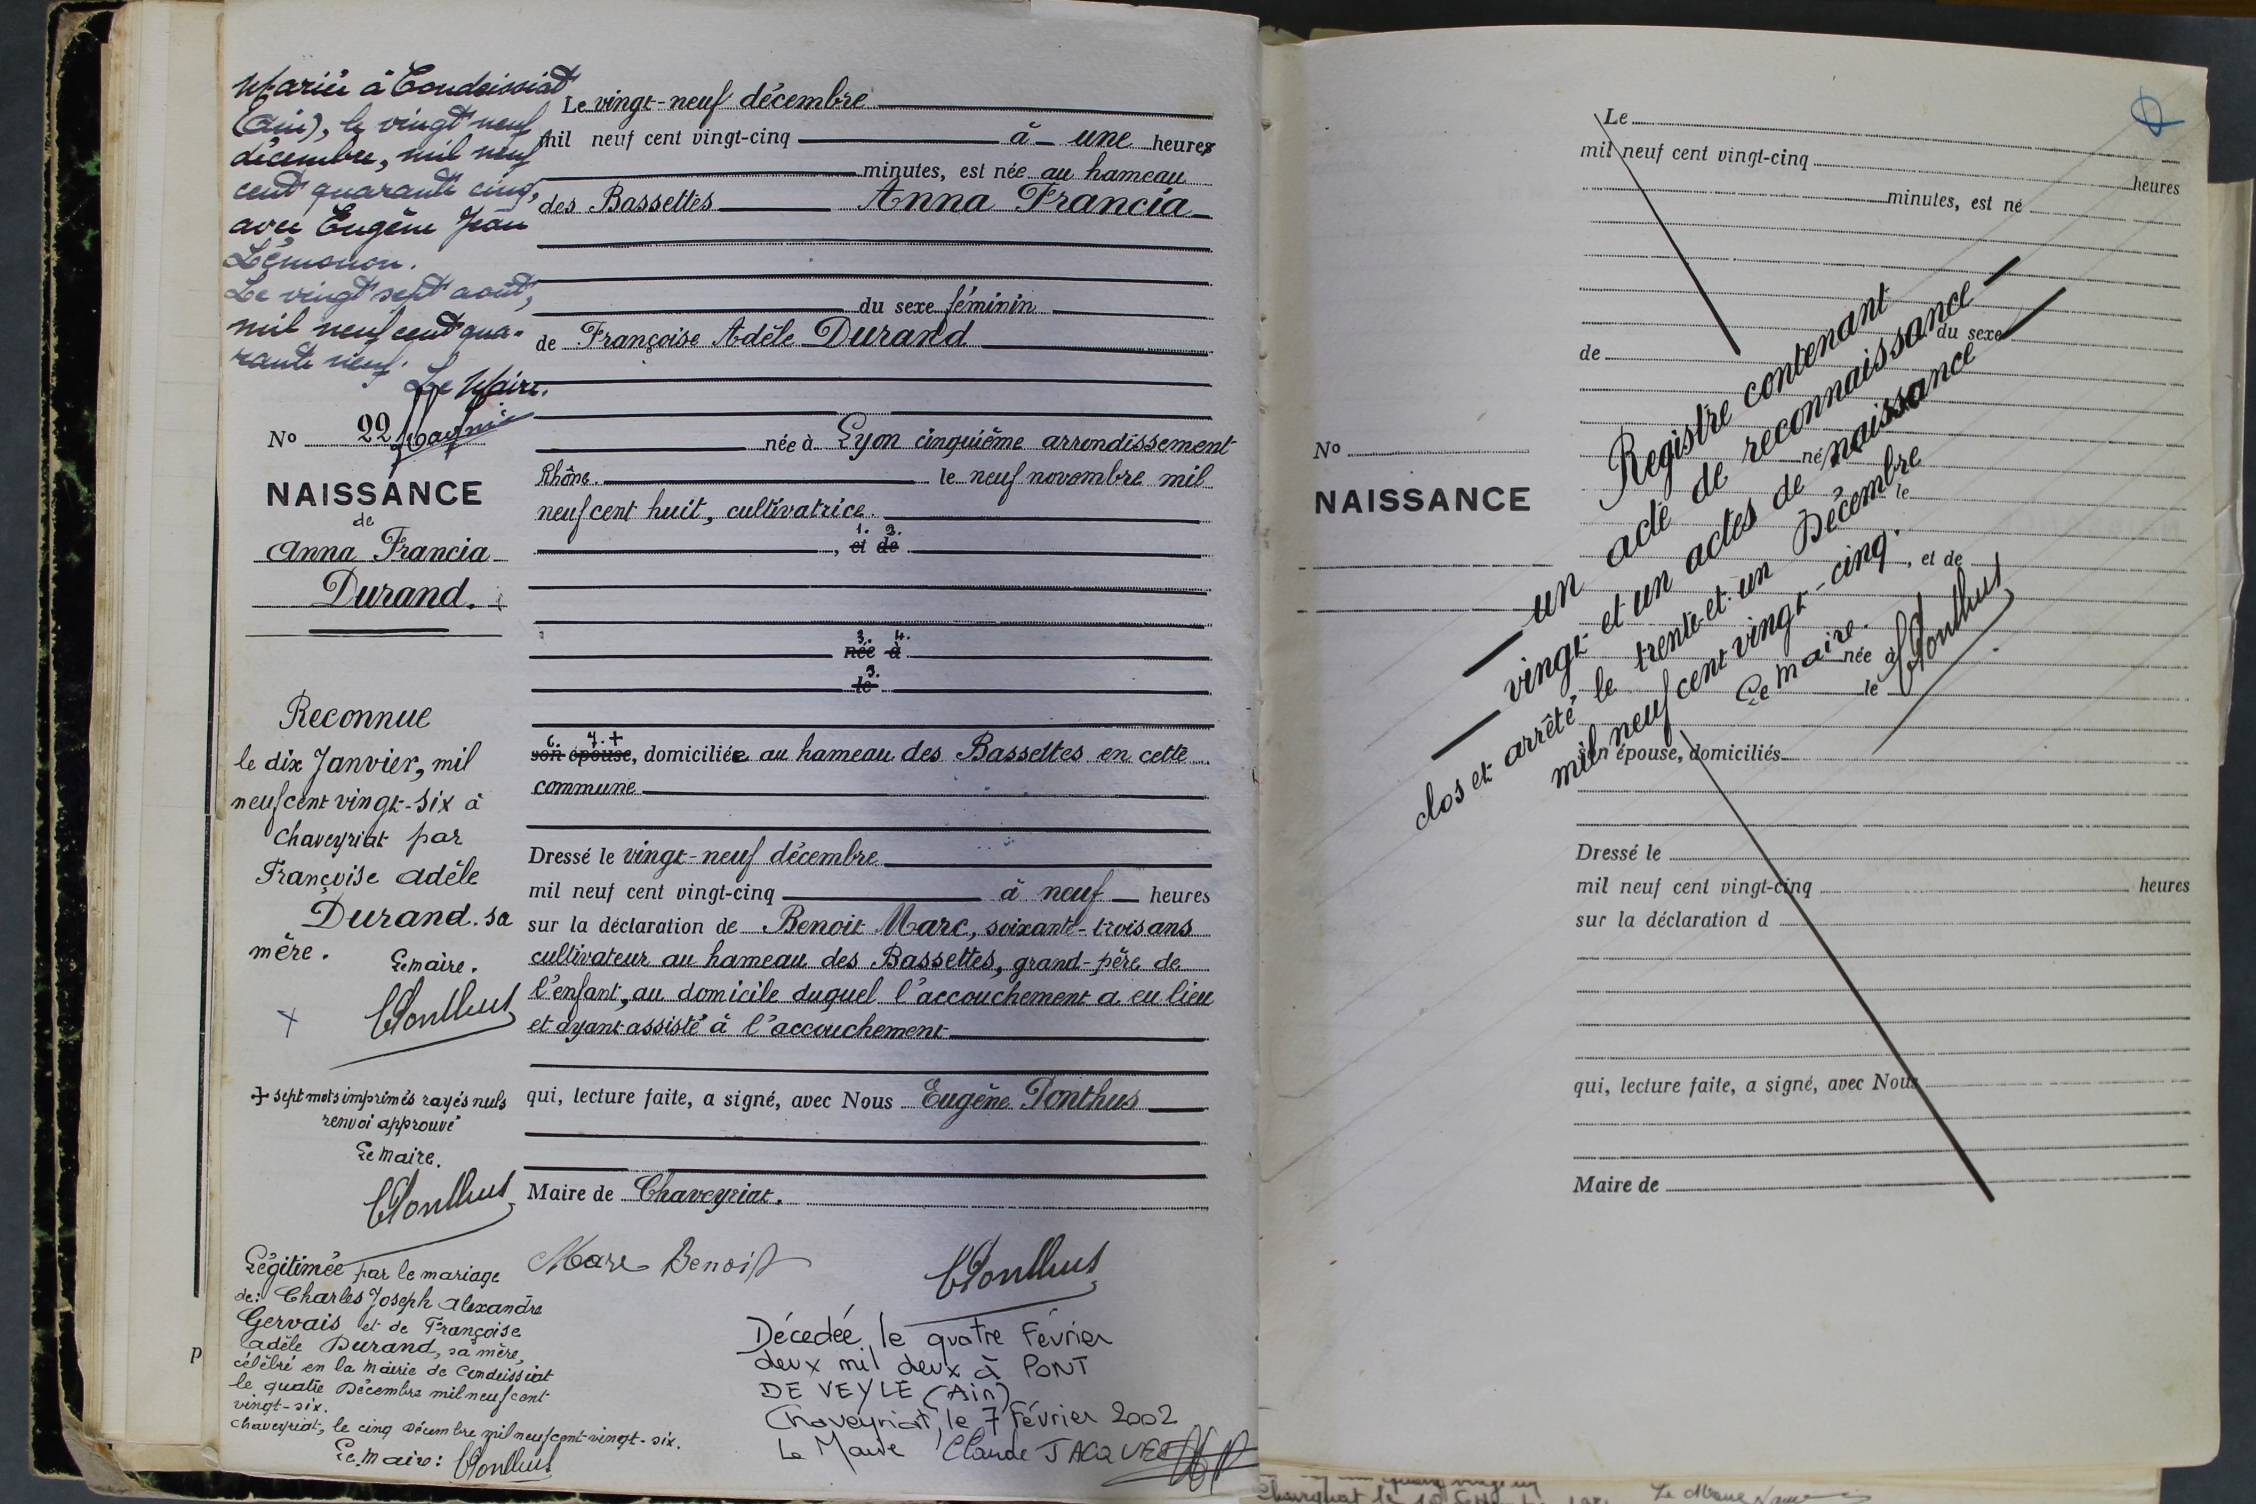 Mariée à Condeissiat
(Ain), le vingt neuf
décembre, mil neuf
cent quarante cinq,
avec Eugène Jean
Le vingt sept août,
mil neuf cent qua-
rante neuf.
Le Maire.
No 22
NAISSANCE
de
Anna Francia
Durand.
Reconnue
le dix Janvier, mil
neuf cent vingt-six à
Chaveyriat par
Françoise Adèle
Durand. sa
mère.
Le maire.
EPonthus
+ sept mots imprimés rayés nuls
renvoi approuvé
Le maire.
EPonthus
Légitimée par le mariage
de: Charles Joseph Alexandre
Gervais et de Françoise
Adèle Durand, sa mère,
célébré en la mairie de Condeissiat
le quatre Décembre mil neuf cent
vingt-six.
Chaveyriat, le cinq décembre mil neuf cent vingt-six.
Le maire: EPonthus
Le vingt-neuf décembre
mil neuf cent vingt-cinq à une heures
minutes, est née au hameau
des Bassettes Anna Francia
du sexe féminin
de Françoise Adèle Durand
née à Lyon cinquième arrondissement
Rhône. le neuf novembre mil
neuf cent huit, cultivatrice.
1. 2.
, et de
3. 4.
née à
le
6. 7. +
son épouse, domiciliée au hameau des Bassettes en cette
commune
Dressé le vingt-neuf décembre
mil neuf cent vingt-cinq à neuf heures
sur la déclaration de Benoit Marc, soixante-trois ans
cultivateur au hameau des Bassettes, grand-père de
l'enfant, au domicile duquel l'accouchement a eu lieu
et ayant assisté à l'accouchement
qui, lecture faite, a signé, avec Nous Eugène Ponthus
Maire de Chaveyriat.
Marc Benoit
EPonthus
Décedée le quatre Février
deux mil deux à PONT
DE VEYLE (Ain)
Chaveyriat, le 7 Février 2002
Le Maire Claude JACQUET
Le
mil neuf cent vingt-cinq
heures
minutes, est né
du sexe
de
No
né
NAISSANCE
le
, et de
née à
le
son épouse, domiciliés
Dressé le
mil neuf cent vingt-cinq heures
sur la déclaration d
qui, lecture faite, a signé, avec Nous
Maire de
Registre contenant
un acte de reconnaissance
vingt et un actes de naissance
clos et arrêté le trente-et-un Décembre
mil neuf cent vingt-cinq.
Le maire.
EPonthus